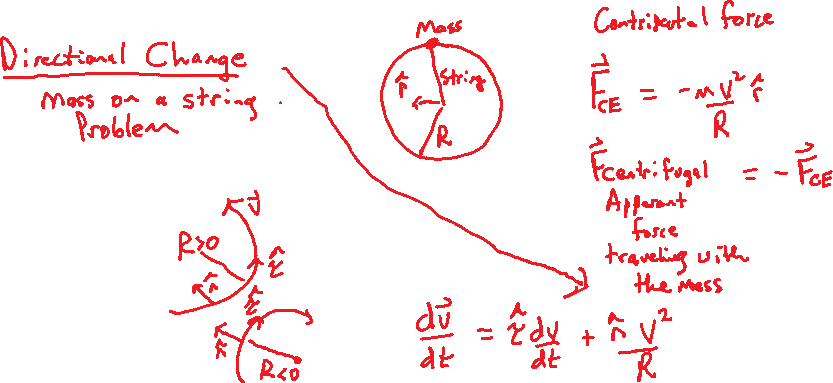 Directional Change
Mass on a string
Problem
Mass
String
r̂
R
Centripetal force
F⃗_CE = -m V²/R r̂
F⃗centrifugal = -F⃗_CE
Apparent
force
traveling with
the mass
V⃗
R>0
τ̂
n̂
τ̂
n̂
R<0
dv⃗/dt = τ̂ dv/dt + n̂ V²/R